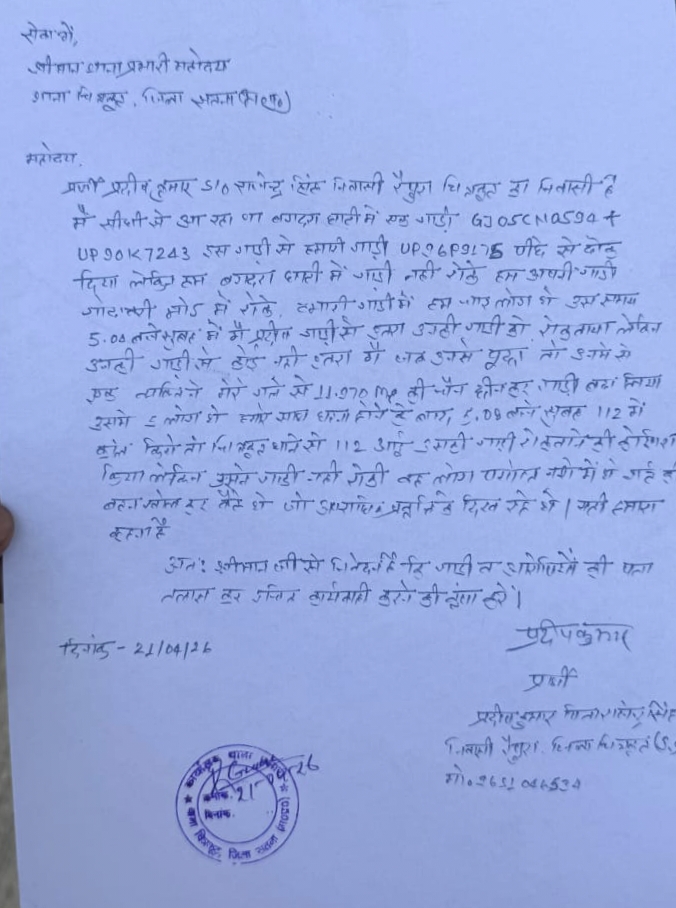 सेवा में,
श्रीमान थाना प्रभारी महोदय
थाना चित्रकूट, जिला सतना (म०प्र०)
महोदय,
प्रार्थी प्रदीप कुमार S/O राजेन्द्र सिंह निवासी रैपुरा चित्रकूट का निवासी है
मैं सीधी से आ रहा था बगदरा घाटी में एक गाड़ी GJ05CN0594 +
UP90K7243 इस गाड़ी से हमारी गाड़ी UP96P9175 पीछे से ठोक
दिया लेकिन हम बगदरा घाटी में गाड़ी नहीं रोके हम अपनी गाड़ी
मोड़ में रोके, हमारी गाड़ी में हम चार लोग थे उस समय
5.00 बजे सुबह में मैं प्रदीप गाड़ी से उतरा उनकी गाड़ी को लेकिन
उनकी गाड़ी से कोई नहीं उतरा मैं जब उनसे पूछा तो उनमें से
एक व्यक्ति ने मेरे गले से 11.970 की चैन छीनकर गाड़ी बढ़ा लिया
उसमें 5 लोग थे हमारे साथ घटना होने के बाद, 5.09 बजे सुबह 112 में
कॉल किये तो चित्रकूट थाने से 112 आई उसकी गाड़ी रोकवाने की कोशिश
किया लेकिन उसने गाड़ी नहीं रोकी वह लोग नशे में थे
कर बैठे थे जो आपराधिक प्रवृत्ति के दिख रहे थे | यही हमारा
कहना है
अतः श्रीमान जी से निवेदन है कि गाड़ी व आरोपियों की पता
तलाश कर उचित कार्यवाही करने की कृपा करें |
दिनांक - 21/04/26
प्रदीप कुमार
प्रार्थी
प्रदीप कुमार पिता राजेन्द्र सिंह
निवासी रैपुरा जिला चित्रकूट
मो०
कार्यालय थाना
क्रमांक
21
26
दिनांक
थाना चित्रकूट, जिला सतना (म०प्र०)